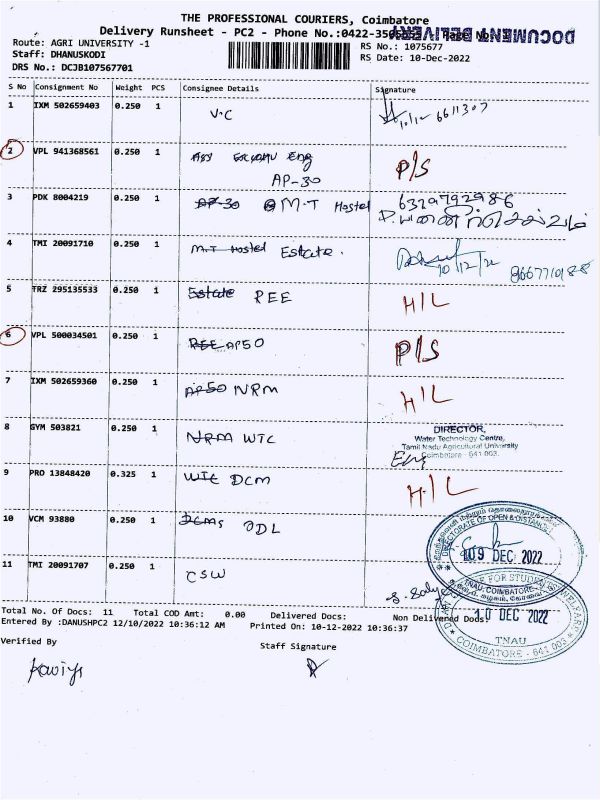 THE PROFESSIONAL COURIERS, Coimbatore
Delivery Runsheet - PC2 - Phone No.:0422-
DOCUMENT DELIVERY
Route: AGRI UNIVERSITY -1
RS No.: 1075677
Staff: DHANUSKODI
RS Date: 10-Dec-2022
DRS No.: DCJB107567701
S No Consignment No Weight PCS Consignee Details Signature
1 IXM 502659403 0.250 1 V.C 10/12 6611307
2 VPL 941368561 0.250 1 Eng P/S
AP-30
3 PDK 8004219 0.250 1 AP-30 M.T Hostel 6329792986
4 TMI 20091710 0.250 1 M.T Hostel Estate. 10/12/22
5 TRZ 295135533 0.250 1 Estate REE H/L
6 VPL 500034501 0.250 1 REE AP50 P/S
7 IXM 502659360 0.250 1 AP50 NRM H/L
8 GYM 503821 0.250 1 NRM WTC
DIRECTOR,
Water Technology Centre,
Tamil Nadu Agricultural University
Coimbatore - 641 003.
9 PRO 13848420 0.325 1 WTC DCM H/L
10 VCM 93880 0.250 1 DCMS ODL
DIRECTORATE OF OPEN & DISTANCE
09 DEC 2022
TNAU, COIMBATORE
11 TMI 20091707 0.250 1 CSW
FOR STUDENTS WELFARE
10 DEC 2022
TNAU
COIMBATORE - 641 003
Total No. Of Docs: 11 Total COD Amt: 0.00 Delivered Docs: Non Delivered Docs:
Entered By :DANUSHPC2 12/10/2022 10:36:12 AM Printed On: 10-12-2022 10:36:37
Verified By
Staff Signature